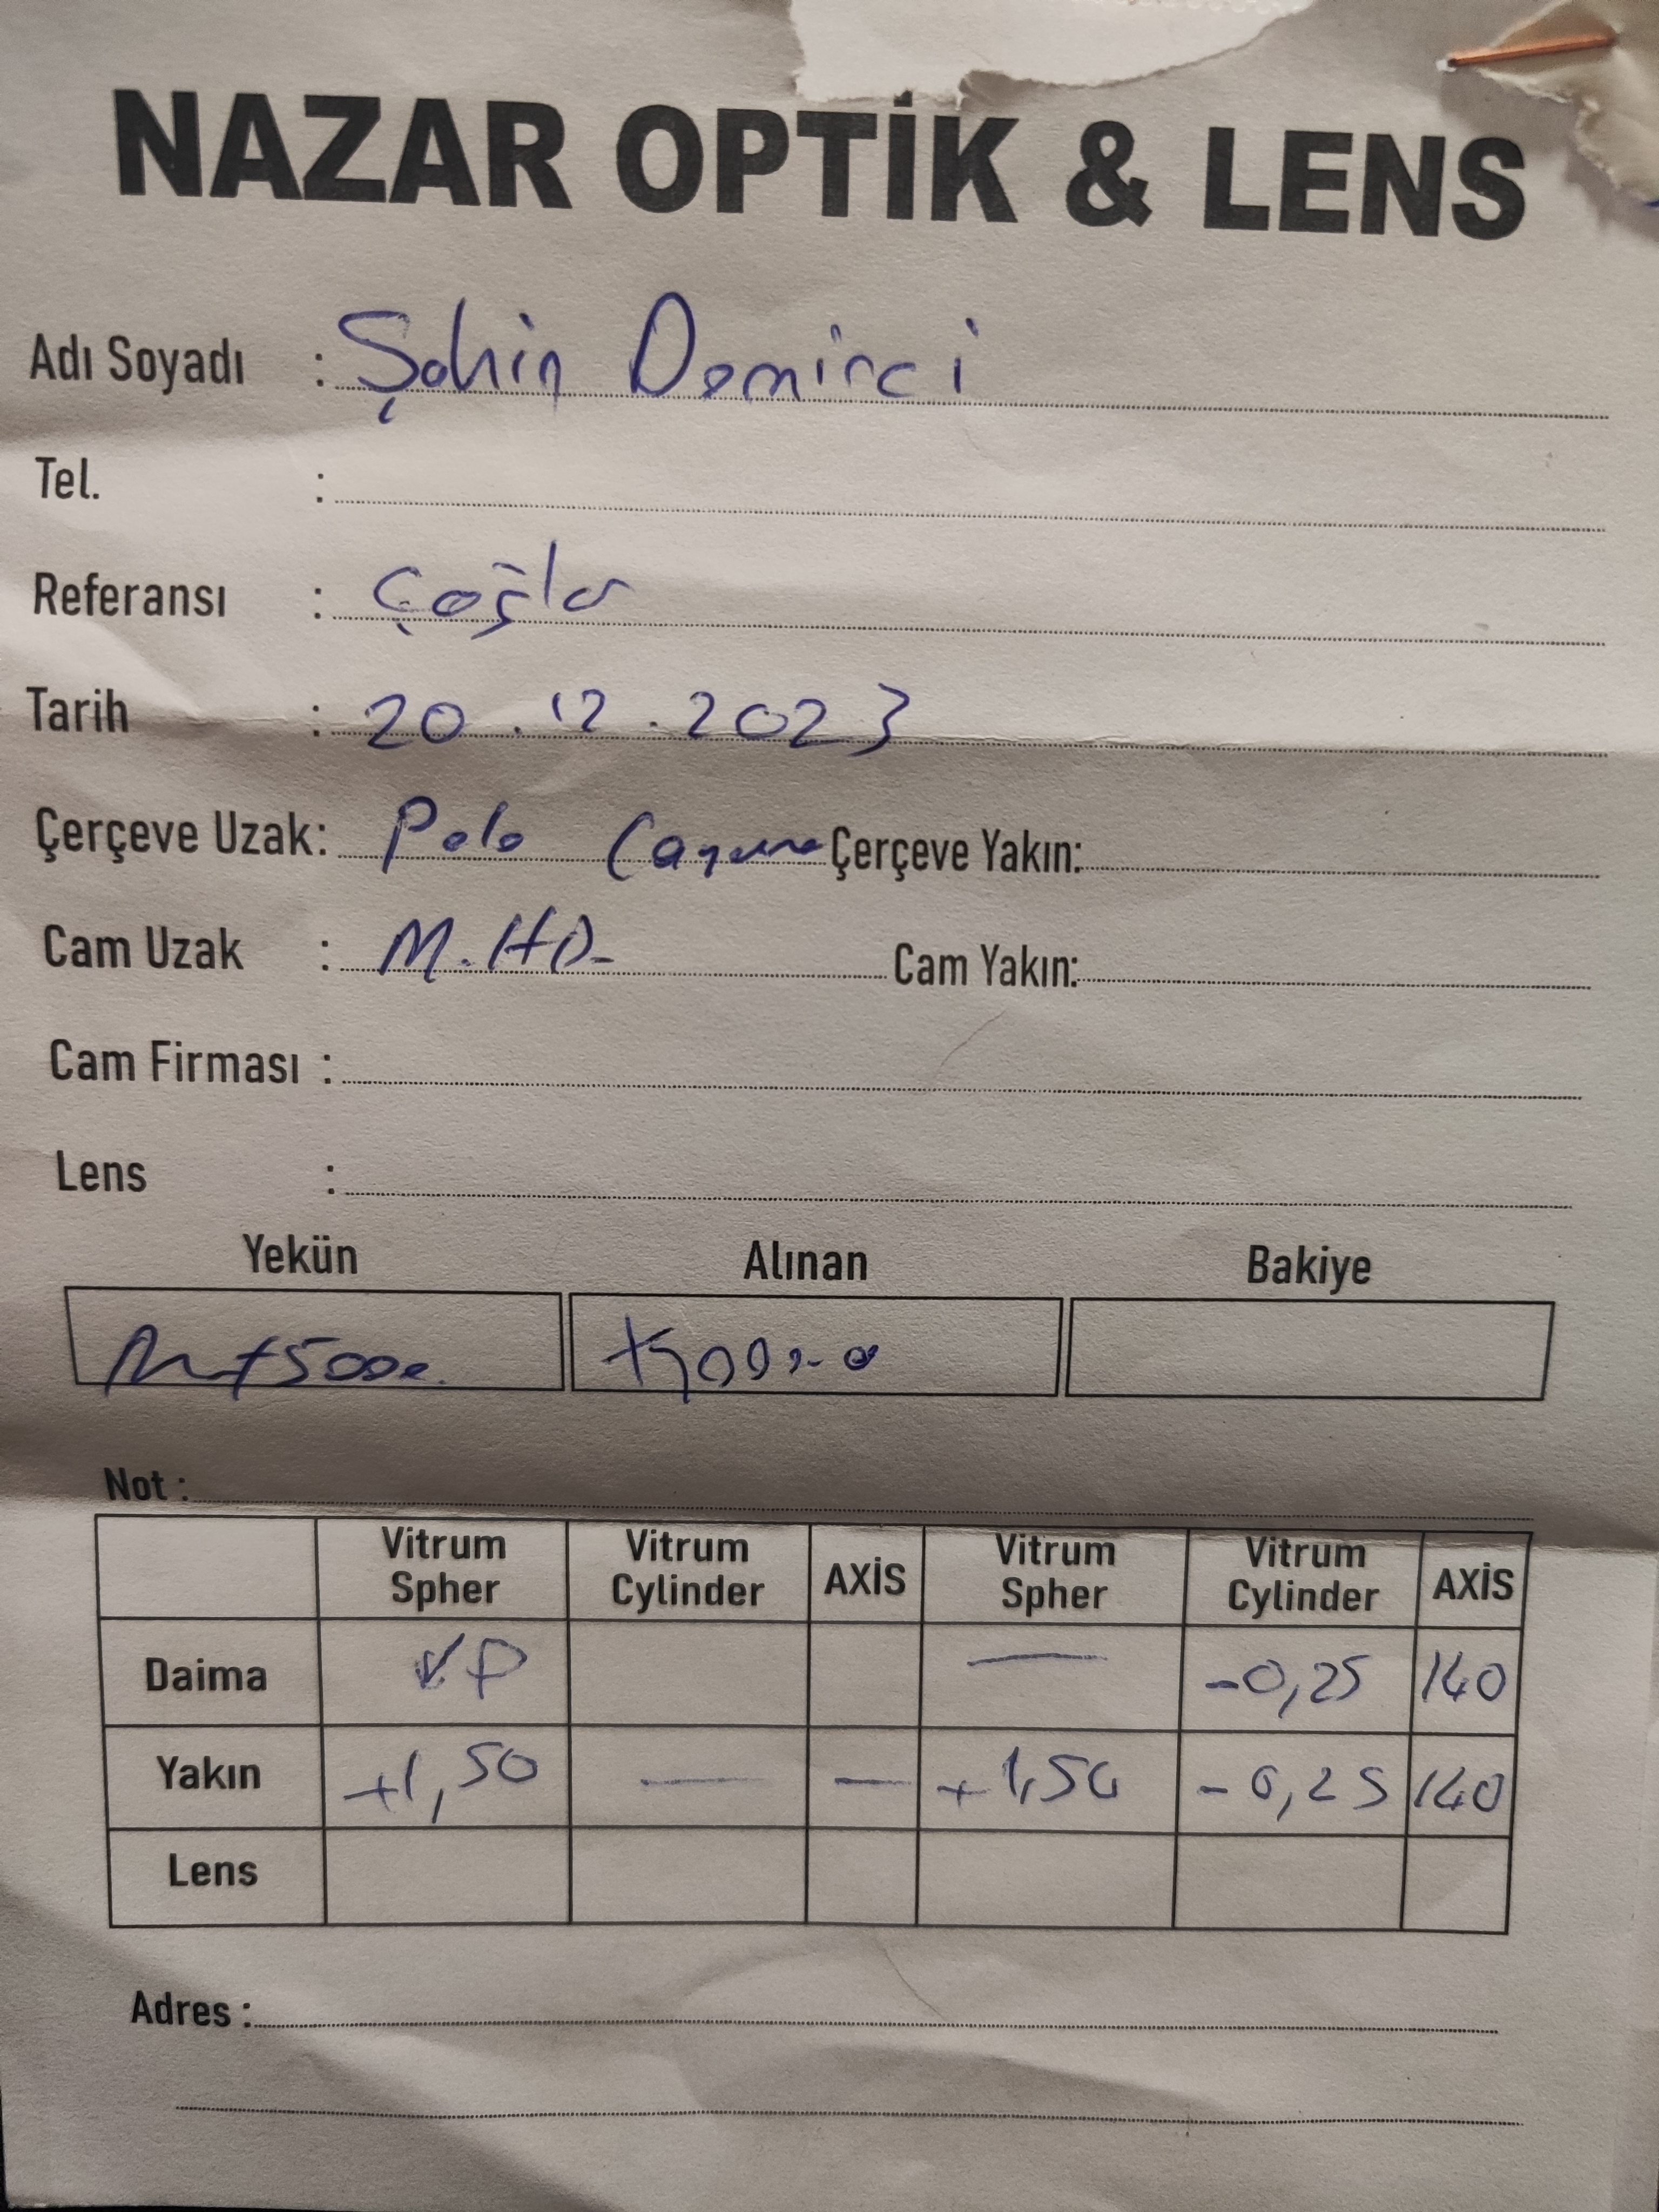 NAZAR OPTİK & LENS
Adı Soyadı : Şahin Demirci
Tel. :
Referansı : Çağla
Tarih : 20.12.2023
Çerçeve Uzak: Polo Çerçeve Yakın:
Cam Uzak : M.HD- Cam Yakın:
Cam Firması :
Lens :
Yekün Alınan Bakiye
Not :
Vitrum Spher Vitrum Cylinder AXİS Vitrum Spher Vitrum Cylinder AXİS
Daima — -0,25 140
Yakın +1,50 — — +1,50 -0,25 140
Lens
Adres :